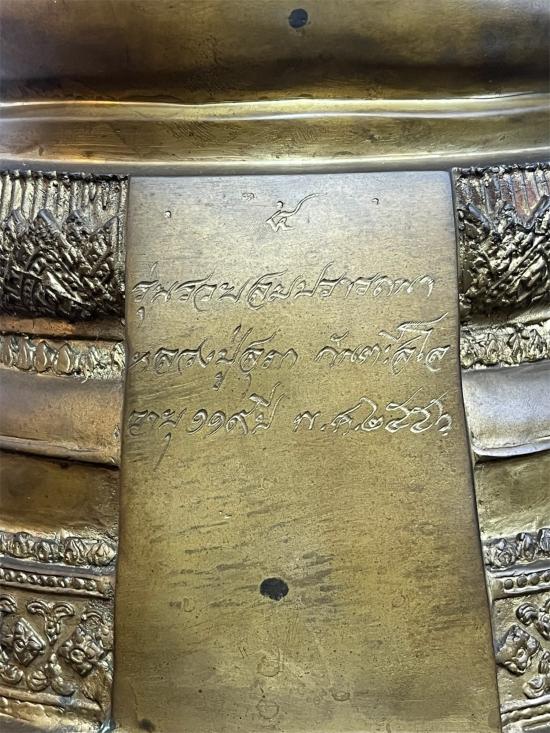 รุ่นรวยสมปรารถนา
หลวงปู่สุภา กันตสีโล
อายุ ๑๑๙ ปี พ.ศ.๒๕๕๖